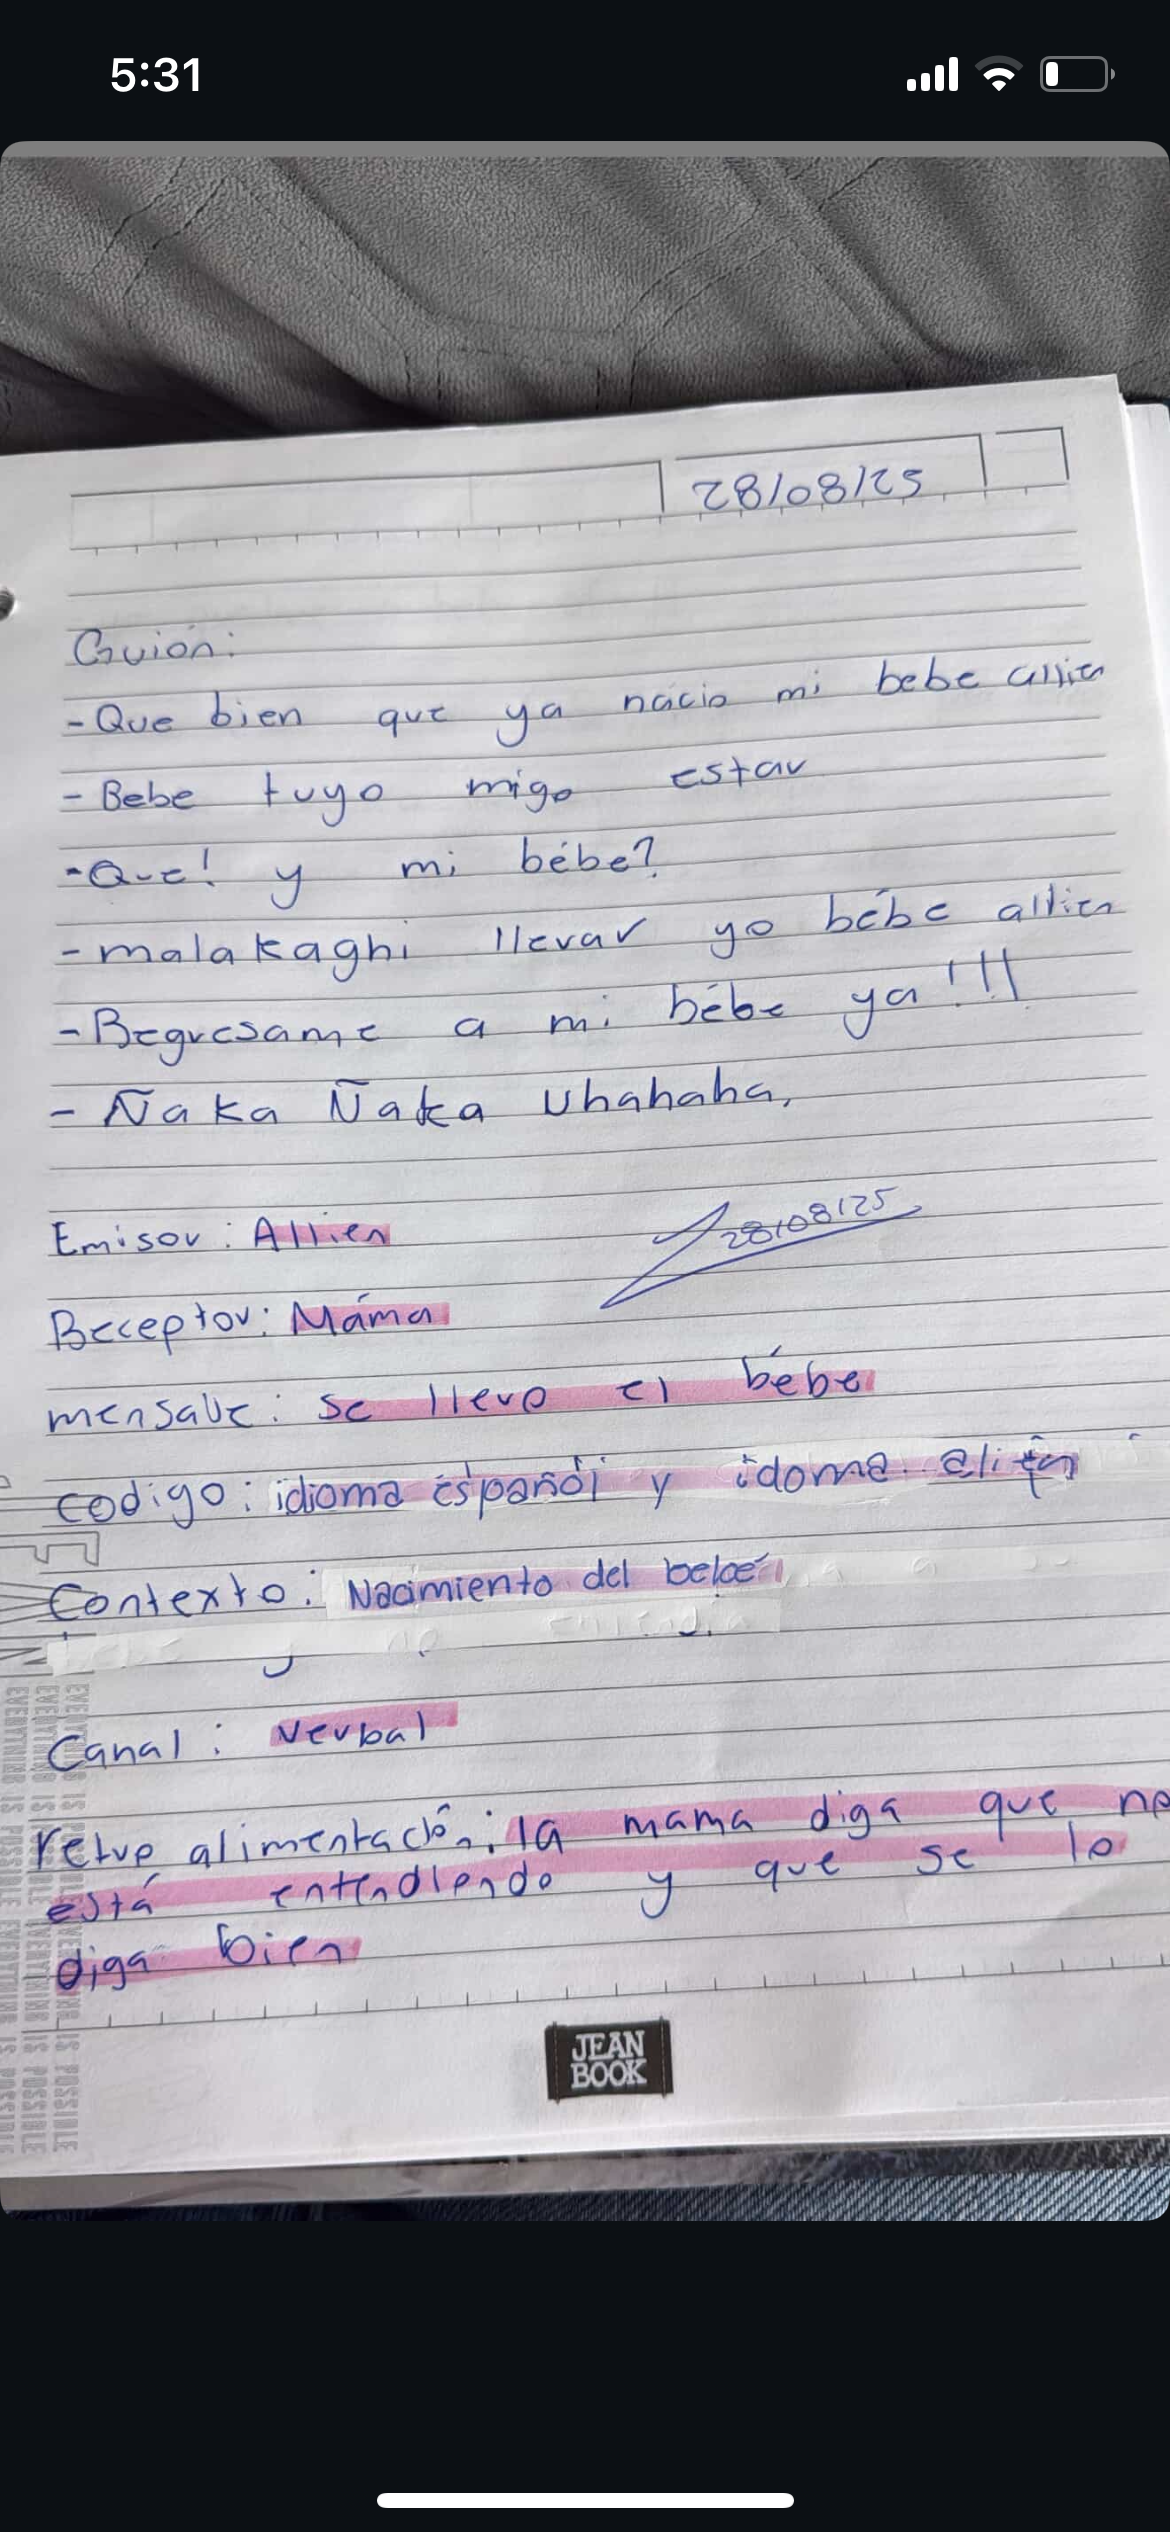 5:31
28/08/25
Guión:
- Que bien que ya nacio mi bebe allien
- Bebe tuyo migo estar
- Que! y mi bébe?
- malakaghi llevar yo bébe allien
- Regresame a mi bébe ya!!!
- Ñaka Ñaka Uhahaha,
28/08/25
Emisor: Allien
Receptor: Máma
mensaje: se llevo el bébe
codigo: idioma español y idoma alien
Contexto: Nacimiento del bebé
Canal: verbal
retro alimentación: la mama diga que no
está entendiendo y que se lo
diga bien
JEAN
BOOK
EVERYTHING IS POSSIBLE